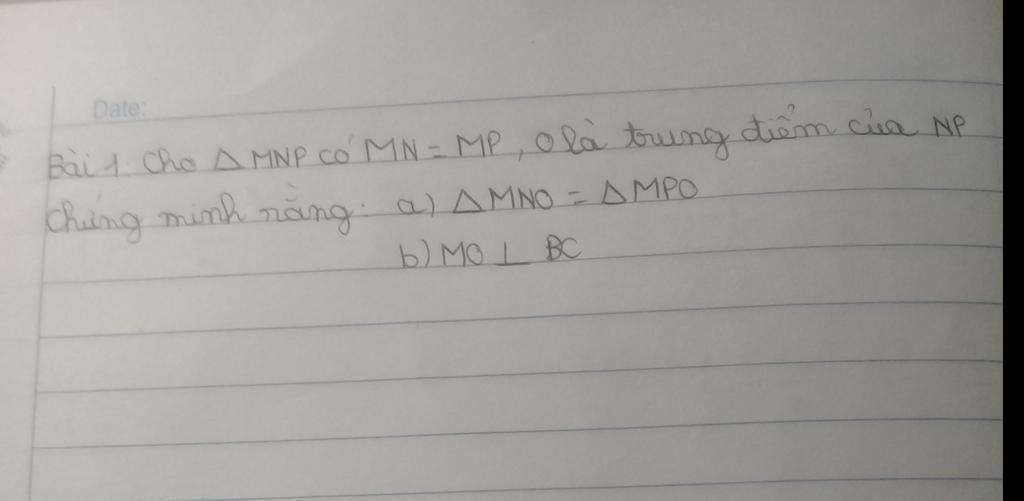 Date:
Bài 1. Cho △MNP có MN = MP, O là trung điểm của NP
Chứng minh rằng: a) △MNO = △MPO
b) MO ⊥ BC